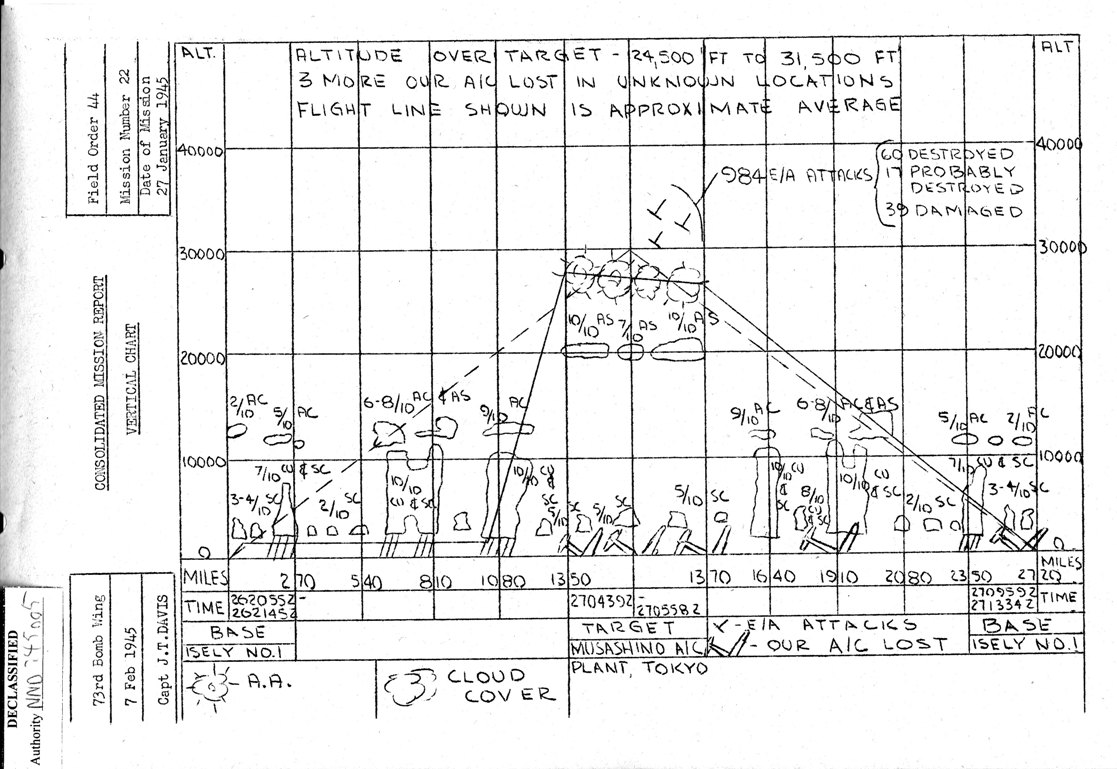 ALT.
ALTITUDE OVER TARGET - 24,500 FT TO 31,500 FT
3 MORE OUR A/C LOST IN UNKNOWN LOCATIONS
FLIGHT LINE SHOWN IS APPROXIMATE AVERAGE
ALT
Field Order 44
Mission Number 22
Date of Mission
27 January 1945
CONSOLIDATED MISSION REPORT
VERTICAL CHART
73rd Bomb Wing
7 Feb 1945
Capt J.T.DAVIS
DECLASSIFIED
Authority NND 745005
40000
40000
984 E/A ATTACKS
60 DESTROYED
17 PROBABLY
DESTROYED
39 DAMAGED
30000
30000
10/10 AS
7/10 AS
10/10 AS
20000
20000
2/10 AC
5/10 AC
6-8/10 AC & AS
9/10 AC
9/10 AC
6-8/10 AC & AS
5/10 AC
2/10 AC
10000
10000
7/10 CU & SC
3-4/10 SC
2/10 SC
10/10 CU & SC
10/10 CU & SC
5/10 SC
5/10 SC
10/10 CU & SC
8/10 CU & SC
10/10 CU & SC
2/10 SC
7/10 CU & SC
3-4/10 SC
0
0
MILES 270 540 810 1080 1350 1370 1640 1910 2080 2350 2720 MILES
TIME 262055Z -
262145Z
270439Z -
270558Z
270959Z
271334Z TIME
BASE
ISELY NO.1
TARGET
MUSASHINO A/C
PLANT, TOKYO
- E/A ATTACKS
- OUR A/C LOST
BASE
ISELY NO.1
- A.A.
CLOUD
COVER